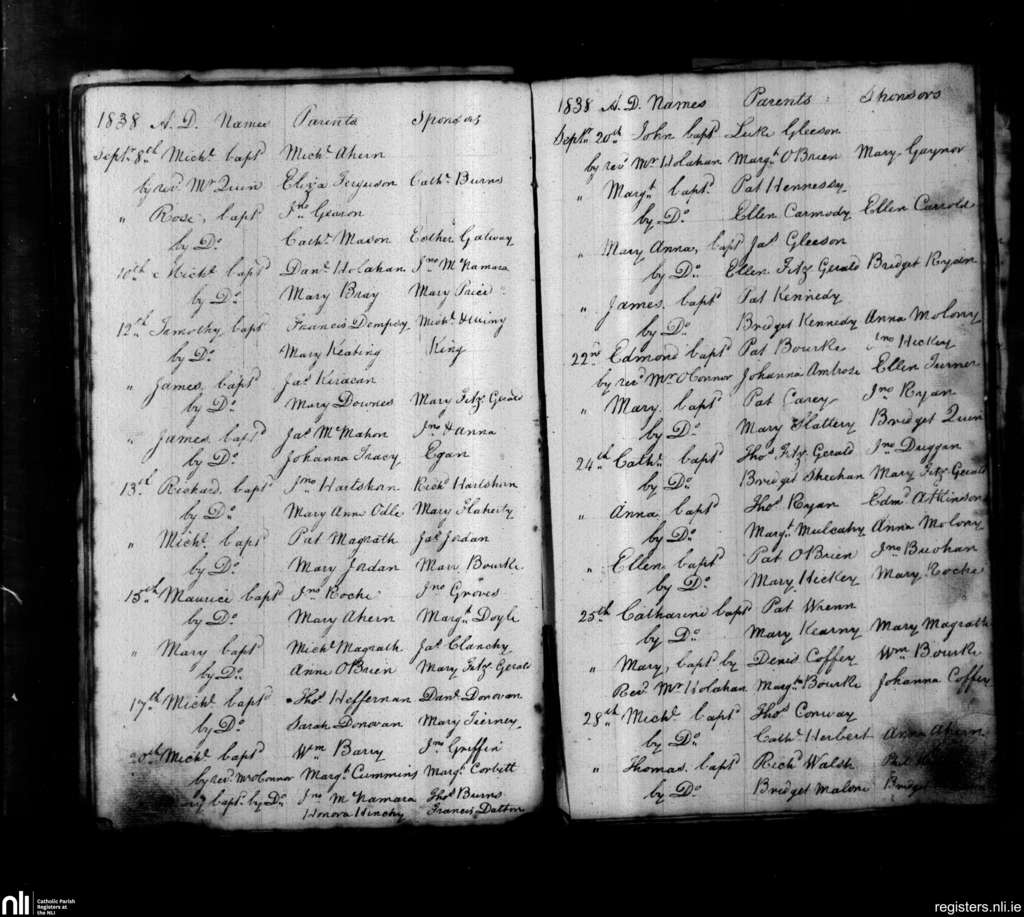 1838 A. D. Names Parents Sponsors
Septr. 8th Michl. bapt Michl. Ahern
by revd. Mr Quin Eliza Ferguson Cathn. Burns
" Rose, bapt Jno Gearon
by Do. Cathn. Mason Esther Galway
10th Michl. bapd Danl. Holahan Jno McNamara
by Do. Mary Bray Mary Price
12th Temothy bapd Francis Dempsy Michl. &
by Do. Mary Keating King
" James, bapd Jas
by Do. Mary Downes Mary Fitz Gerald
" James bapd Jas McMahon Jno & Anna
by Do. Johanna Tracy Egan
13th Richard, bapd Jno Hartshorn Richd. Hartshorn
by Do. Mary Anne Odle Mary Flaherty
" Michl. bapd Pat Magrath Jas Jordan
by Do. Mary Jordan Mary Bourke
15th Maurice bapd Jno Roche Jno Groves
by Do. Mary Ahern Margt. Doyle
" Mary bapd Michl. Magrath Jas Clanchy
by Do. Anne OBrien Mary Fitz Gerald
17th Michl. bapd Thos Heffernan Danl. Donovan
by Do. Sarah Donovan Mary Tierney
20th Michl. bapd Wm Barry Jno Griffin
by revd. Mr OConnor Margt. Cummins Margt. Corbett
bapt. by Do. Jno McNamara Thos Burns
Honora Hinchy Francis Dalton
1838 A. D. Names Parents Sponsors
Septr. 20th John bapd Luke Gleeson
by revd Mr Holahan Margt. OBrien Mary Gaynor
" Margt. bapt. Pat Hennessy
by Do. Ellen Carmody Ellen Carrold
" Mary Anna, bapd Jas Gleeson
by Do. Ellen Fitz Gerald Bridget Ryan
" James, bapd Pat Kennedy
by Do. Bridget Kennedy Anna Molony
22nd Edmond bapd Pat Bourke Jno Hickey
by revd Mr OConnor Johanna Ambrose Ellen Turner
" Mary, bapd Pat Carey Jno Ryan
by Do. Mary Slattery Bridget Quin
24th Cathn. bapd Thos Fitz Gerald Jno Duggan
by Do. Bridget Sheehan Mary Fitz Gerald
" Anna, bapd Thos Ryan Edmd Atkinson
by Do. Margt. Mulcahy Anna Molony
" Ellen bapd Pat OBrien Jno
by Do. Mary Hickey Mary Roche
25th Catharine bapd Pat Wrenn
by Do. Mary Kearny Mary Magrath
" Mary, bapd by Denis Coffey Wm Bourke
Revd Mr Holahan Margt. Bourke Johanna Coffey
28th Michl. bapd Thos Conway
by Do. Cathn. Herbert Anna Ahern
" Thomas, bapd Richd. Walsh Pat
by Do. Bridget Malone Bridget
nli Catholic Parish
Registers at
the NLI
registers.nli.ie